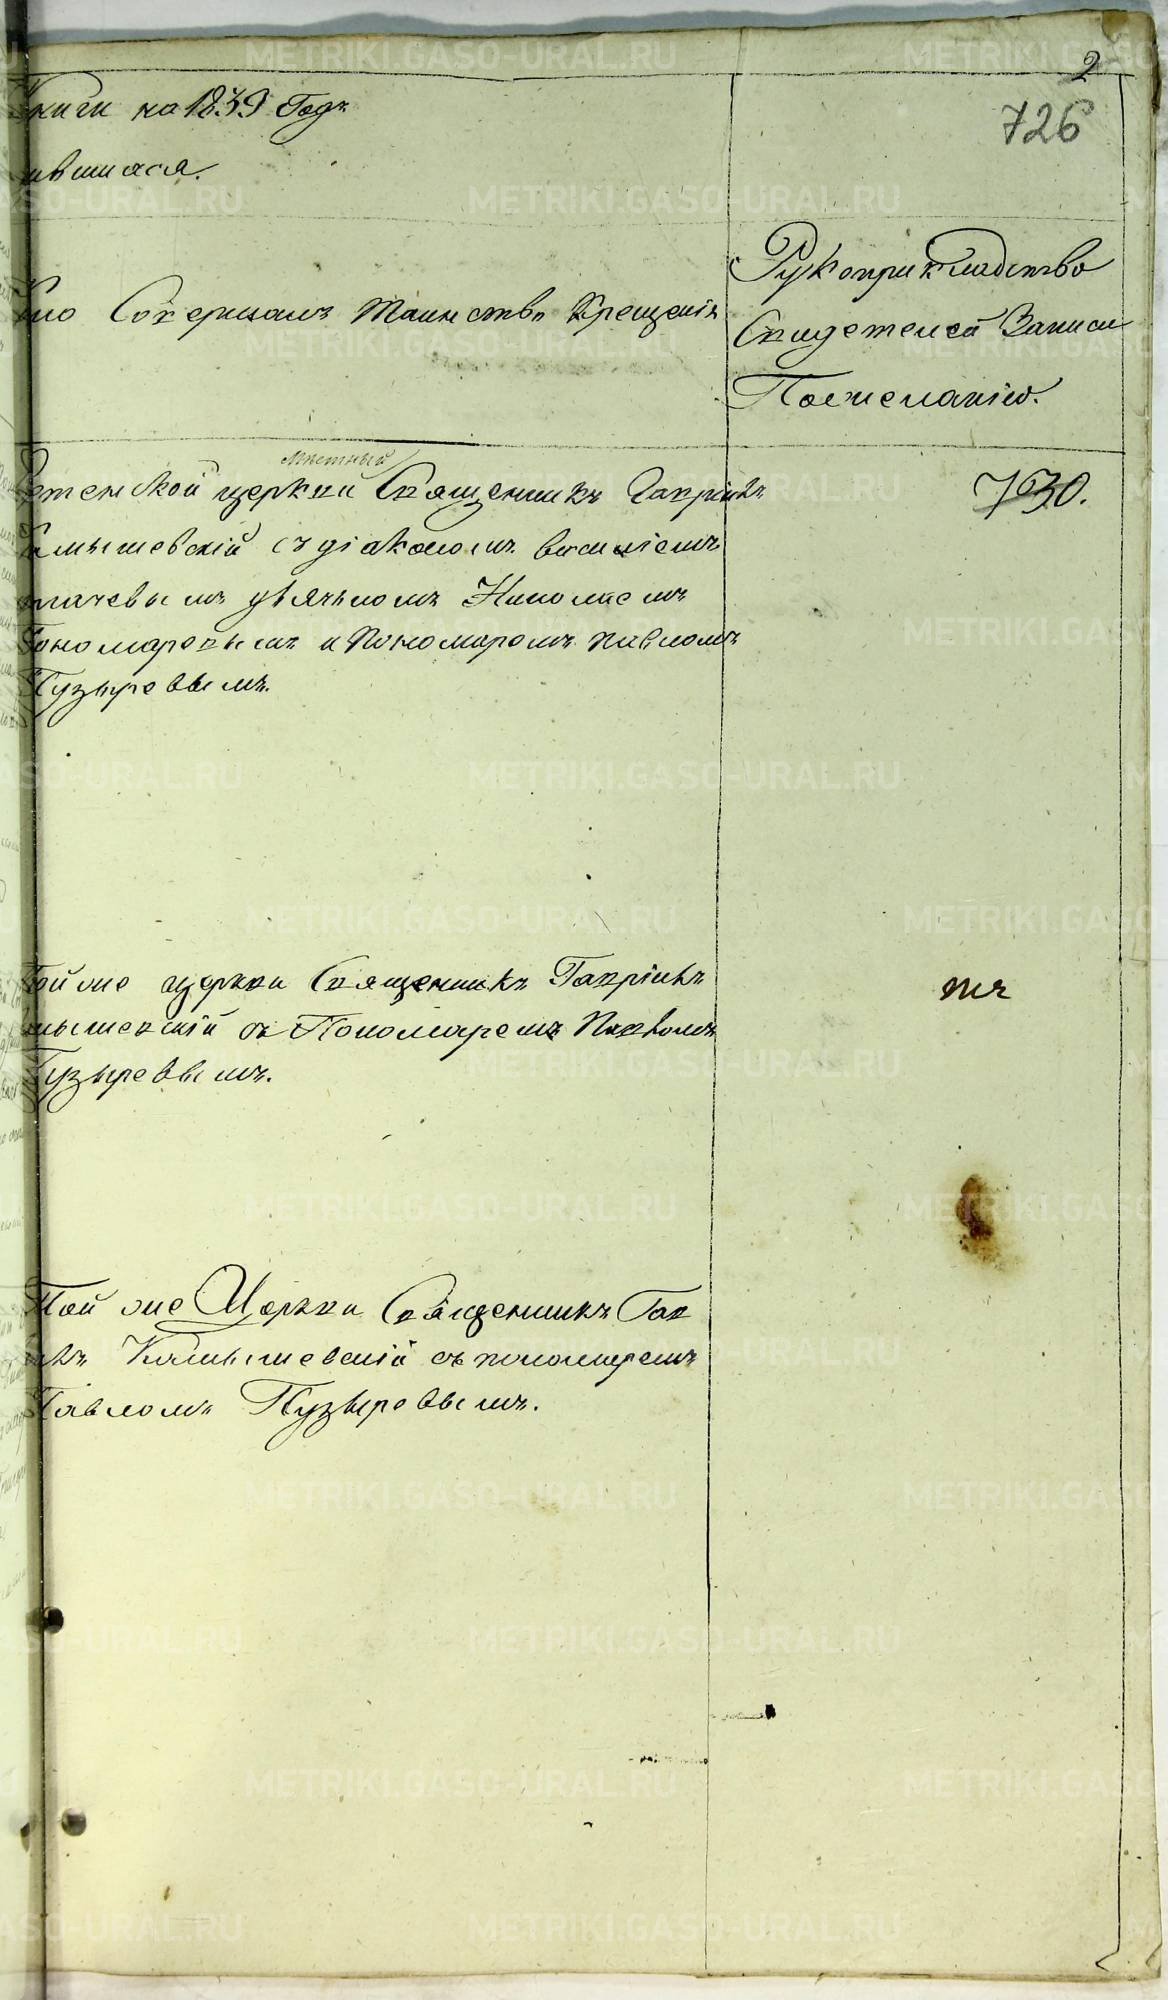 2
726
Книги на 1839 Годъ
ившихся.
Кто Совершалъ Таинство Крещенія
Рукоприкладство
Свидетелей Записи
Пожеланію.
мѣстный
тенской церкви Священникъ Гавріилъ
Камышевскій съ діакономъ василіемъ
дьячькомъ Николаемъ
Пономаревымъ и Пономаремъ павломъ
Пузыревымъ.
730.
Той же церкви Священникъ Гавріилъ
мышевскій съ Пономаремъ Павломъ
Пузыревымъ.
Той же Церкви Священникъ Гав
илъ Камышевскій съ пономаремъ
Павломъ Пузыревымъ.
METRIKI.GASO-URAL.RU